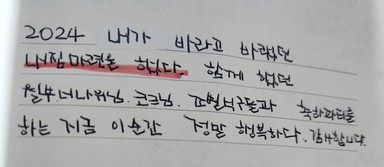 2024 내가 바라고 바랬던
내집마련을 했다. 함께 했던
월부.너나위님. 코크님. 조별식구들과 축하파티를
하는 지금 이순간 정말 행복하다. 감사합니다.